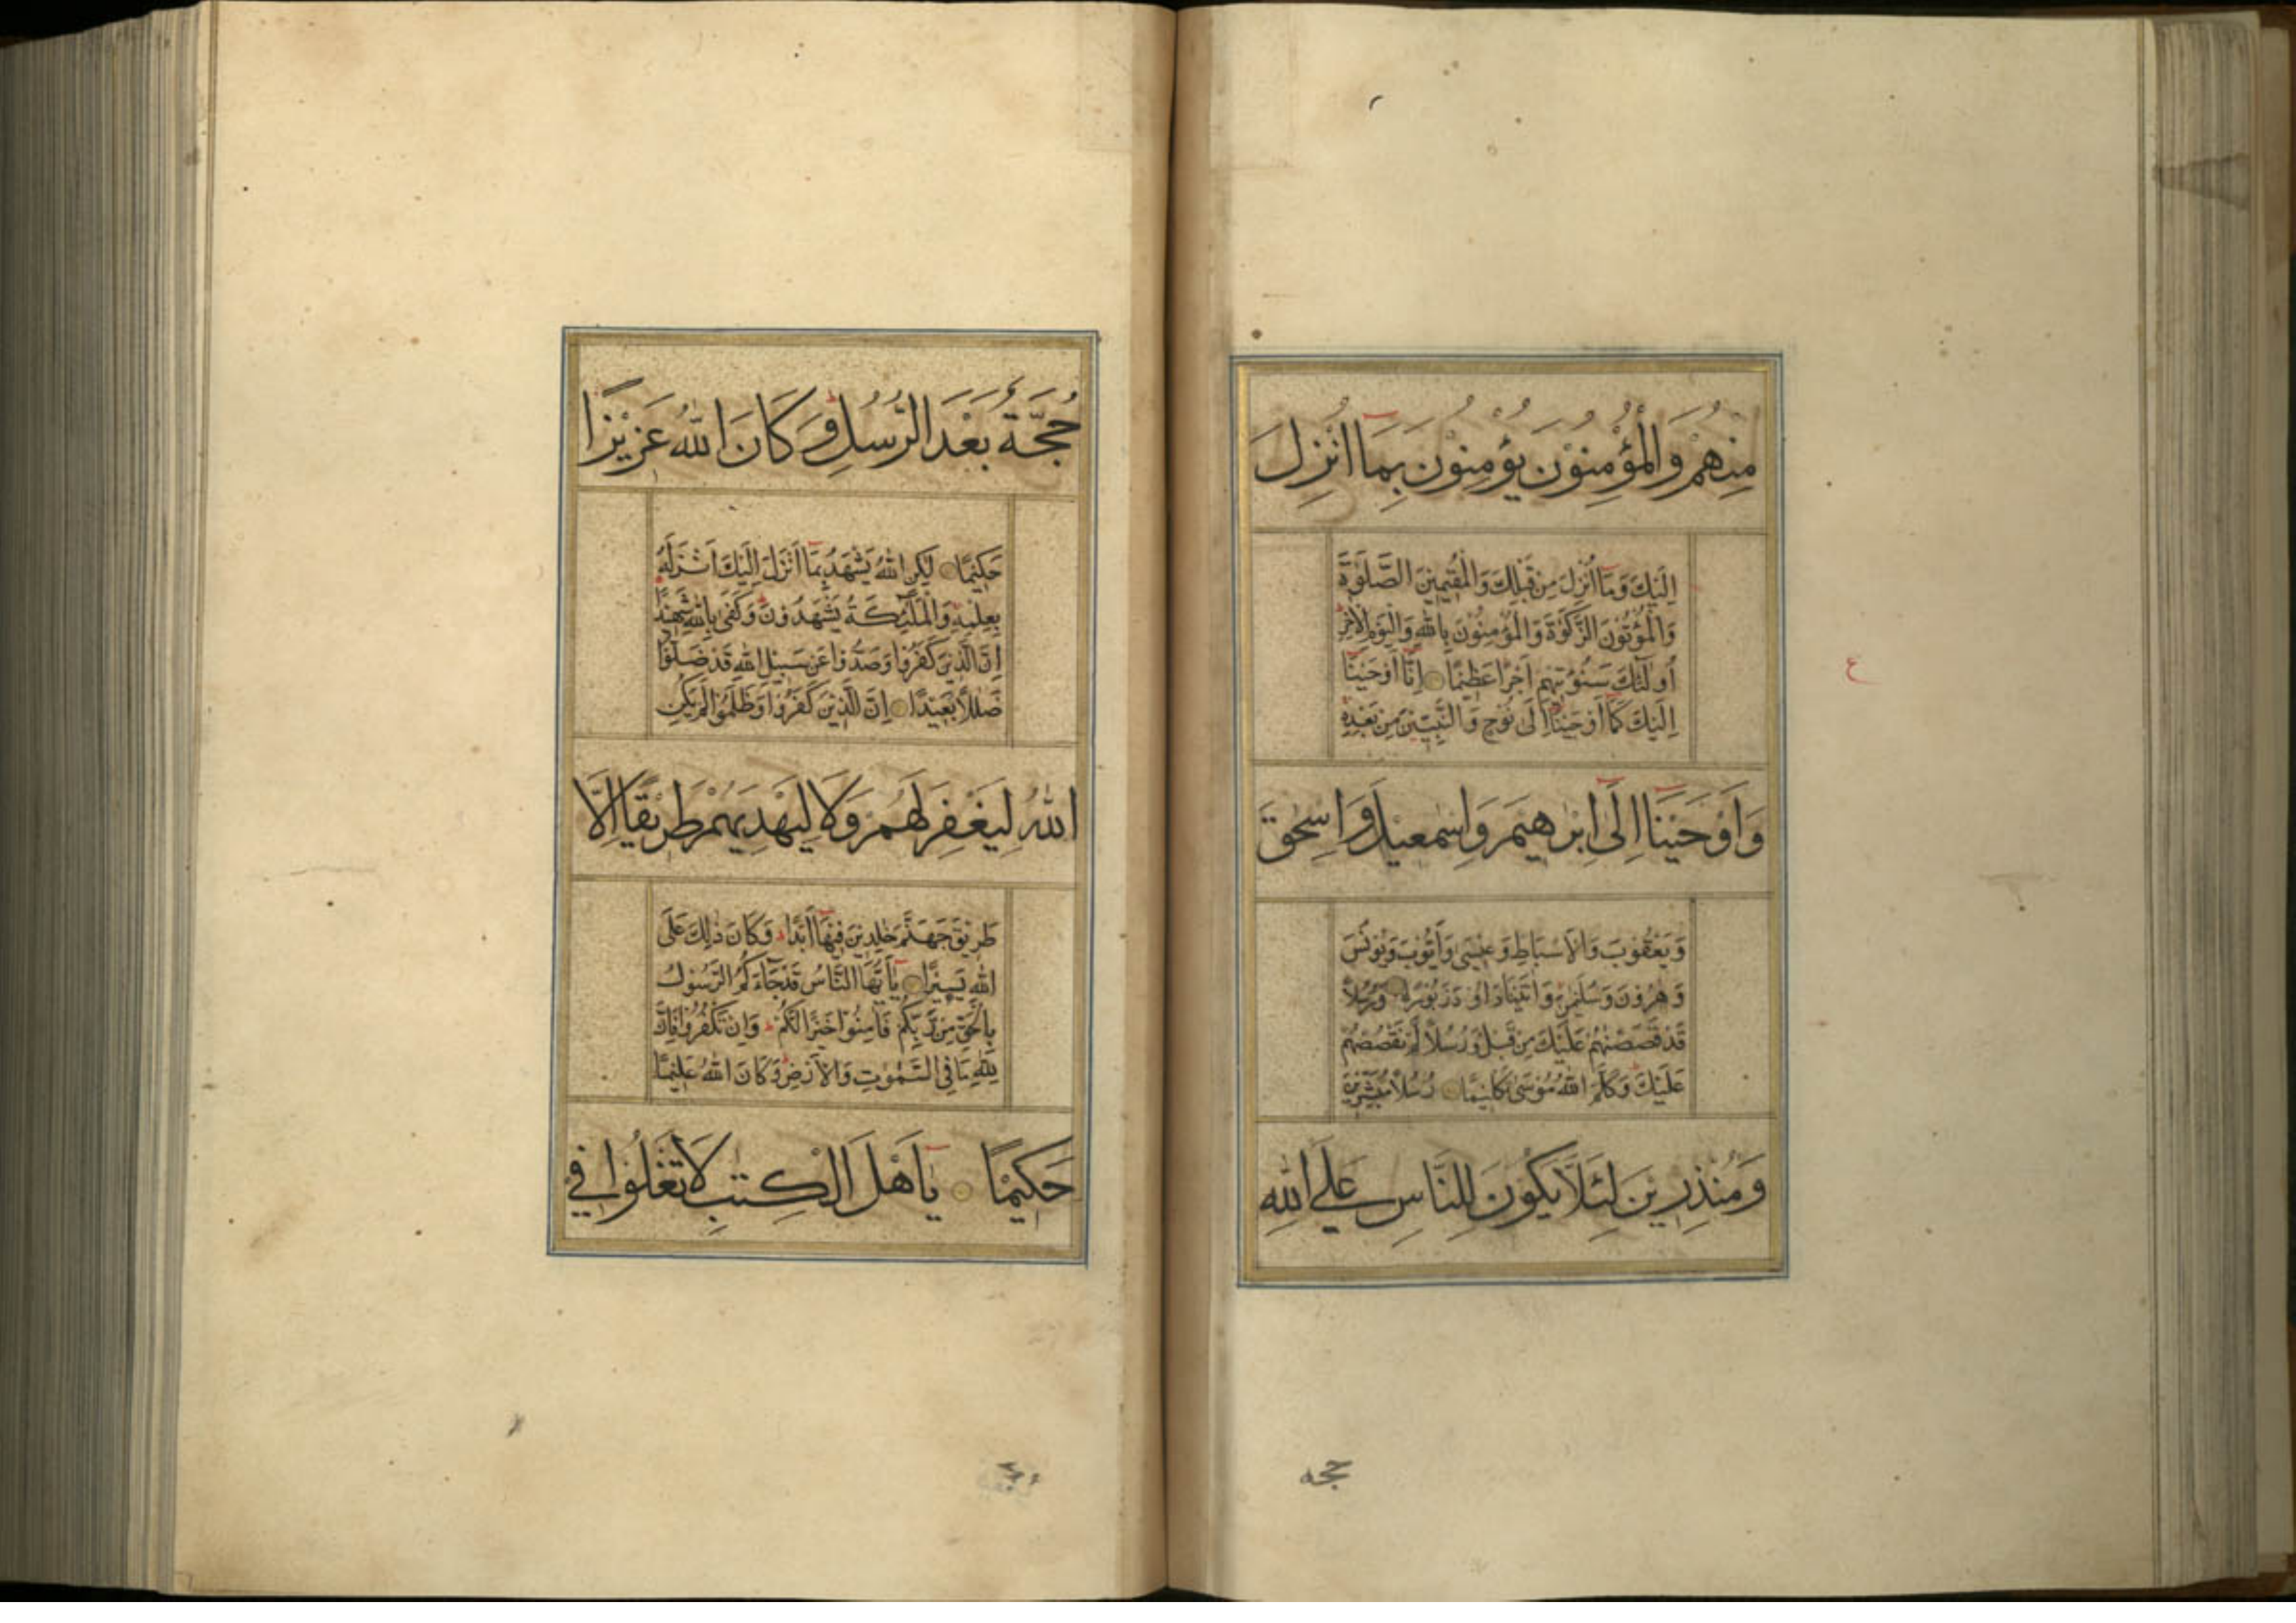 مِنْهُمْ وَالْمُؤْمِنُوْنَ يُؤْمِنُوْنَ بِمَا اُنْزِلَ
اِلَيْكَ وَمَا اُنْزِلَ مِنْ قَبْلِكَ وَالْمُقِيْمِيْنَ الصَّلٰوةَ
وَالْمُؤْتُوْنَ الزَّكٰوةَ وَالْمُؤْمِنُوْنَ بِاللهِ وَالْيَوْمِ الْاٰخِرِ
اُولٰٓئِكَ سَنُؤْتِيْهِمْ اَجْرًا عَظِيْمًا اِنَّا اَوْحَيْنَا
اِلَيْكَ كَمَا اَوْحَيْنَا اِلٰى نُوْحٍ وَالنَّبِيّٖنَ مِنْ بَعْدِهٖ
وَاَوْحَيْنَا اِلٰى اِبْرٰهِيْمَ وَاِسْمٰعِيْلَ وَاِسْحٰقَ
وَيَعْقُوْبَ وَالْاَسْبَاطِ وَعِيْسٰى وَاَيُّوْبَ وَيُوْنُسَ
وَهٰرُوْنَ وَسُلَيْمٰنَ وَاٰتَيْنَا دَاوٗدَ زَبُوْرًا وَرُسُلًا
قَدْ قَصَصْنٰهُمْ عَلَيْكَ مِنْ قَبْلُ وَرُسُلًا لَمْ نَقْصُصْهُمْ
عَلَيْكَ وَكَلَّمَ اللهُ مُوْسٰى تَكْلِيْمًا رُسُلًا مُبَشِّرِيْنَ
وَمُنْذِرِيْنَ لِئَلَّا يَكُوْنَ لِلنَّاسِ عَلَى اللهِ
حجه
حُجَّةٌ بَعْدَ الرُّسُلِ وَكَانَ اللهُ عَزِيْزًا
حَكِيْمًا لٰكِنِ اللهُ يَشْهَدُ بِمَا اَنْزَلَ اِلَيْكَ اَنْزَلَهٗ
بِعِلْمِهٖ وَالْمَلٰٓئِكَةُ يَشْهَدُوْنَ وَكَفٰى بِاللهِ شَهِيْدًا
اِنَّ الَّذِيْنَ كَفَرُوْا وَصَدُّوْا عَنْ سَبِيْلِ اللهِ قَدْ ضَلُّوْا
ضَلٰلًا بَعِيْدًا اِنَّ الَّذِيْنَ كَفَرُوْا وَظَلَمُوْا لَمْ يَكُنِ
اللهُ لِيَغْفِرَ لَهُمْ وَلَا لِيَهْدِيَهُمْ طَرِيْقًا اِلَّا
طَرِيْقَ جَهَنَّمَ خٰلِدِيْنَ فِيْهَا اَبَدًا وَكَانَ ذٰلِكَ عَلَى
اللهِ يَسِيْرًا يٰٓاَيُّهَا النَّاسُ قَدْ جَآءَكُمُ الرَّسُوْلُ
بِالْحَقِّ مِنْ رَّبِّكُمْ فَاٰمِنُوْا خَيْرًا لَّكُمْ وَاِنْ تَكْفُرُوْا فَاِنَّ
لِلهِ مَا فِي السَّمٰوٰتِ وَالْاَرْضِ وَكَانَ اللهُ عَلِيْمًا
حَكِيْمًا يٰٓاَهْلَ الْكِتٰبِ لَا تَغْلُوْا فِيْ